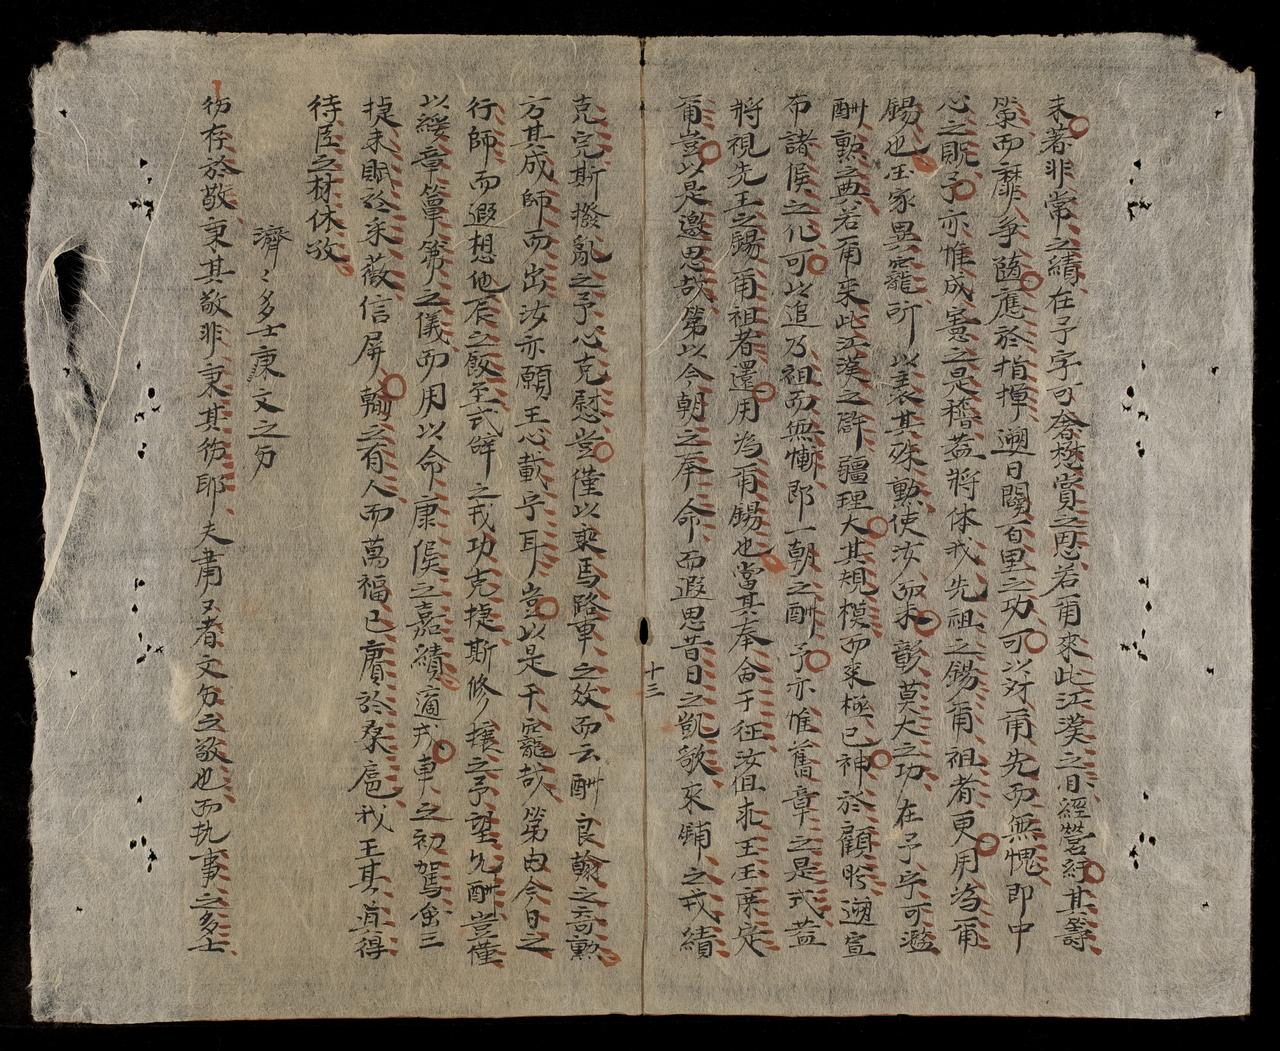 未著非常之績在予字可奢懋賞之思若爾來此江漢之日經營紆其籌
策而靡爭隨應於指揮遡日闢百里之功可以对爾先而無愧即中
心之貺予亦惟成憲之是稽蓋將体我先祖之錫爾祖者更用為爾
錫也国家異寵所以表其殊勲使汝而未彰莫大之功在予字可濫
酬勲之典若爾來此江漢之滸疆理大其規模而來極已神於顧盻遡宣
布諸侯之化可以追乃祖而無慚即一朝之酬予亦惟舊章之是式蓋
將視先王之錫爾祖者還用為爾錫也當其奉命于征汝但求王国庶定
爾豈以是邀思哉第以今朝之奉命而遐思昔日之凱歌來歸之戎績
克完斯撥亂之予心克慰豈僅以乘馬路車之效而云酬良翰之奇勲
方其成師而出汝亦願王心載寧耳豈以是干寵哉第由今日之
行師而遐想他辰之飲至式辟之戎功克捷斯修攘之予望允酬豈僅
以綏章簟笰之儀而用以命康侯之嘉績適戎車之初駕奮三
捷未賦於采薇信屏翰之有人而萬福已賡於桑扈我王其眞得
待臣之材休哉
濟〻多士秉文之匀
彷存於敬秉其敬非秉其彷耶夫肅又者文匀之敬也而执事之多士
十三